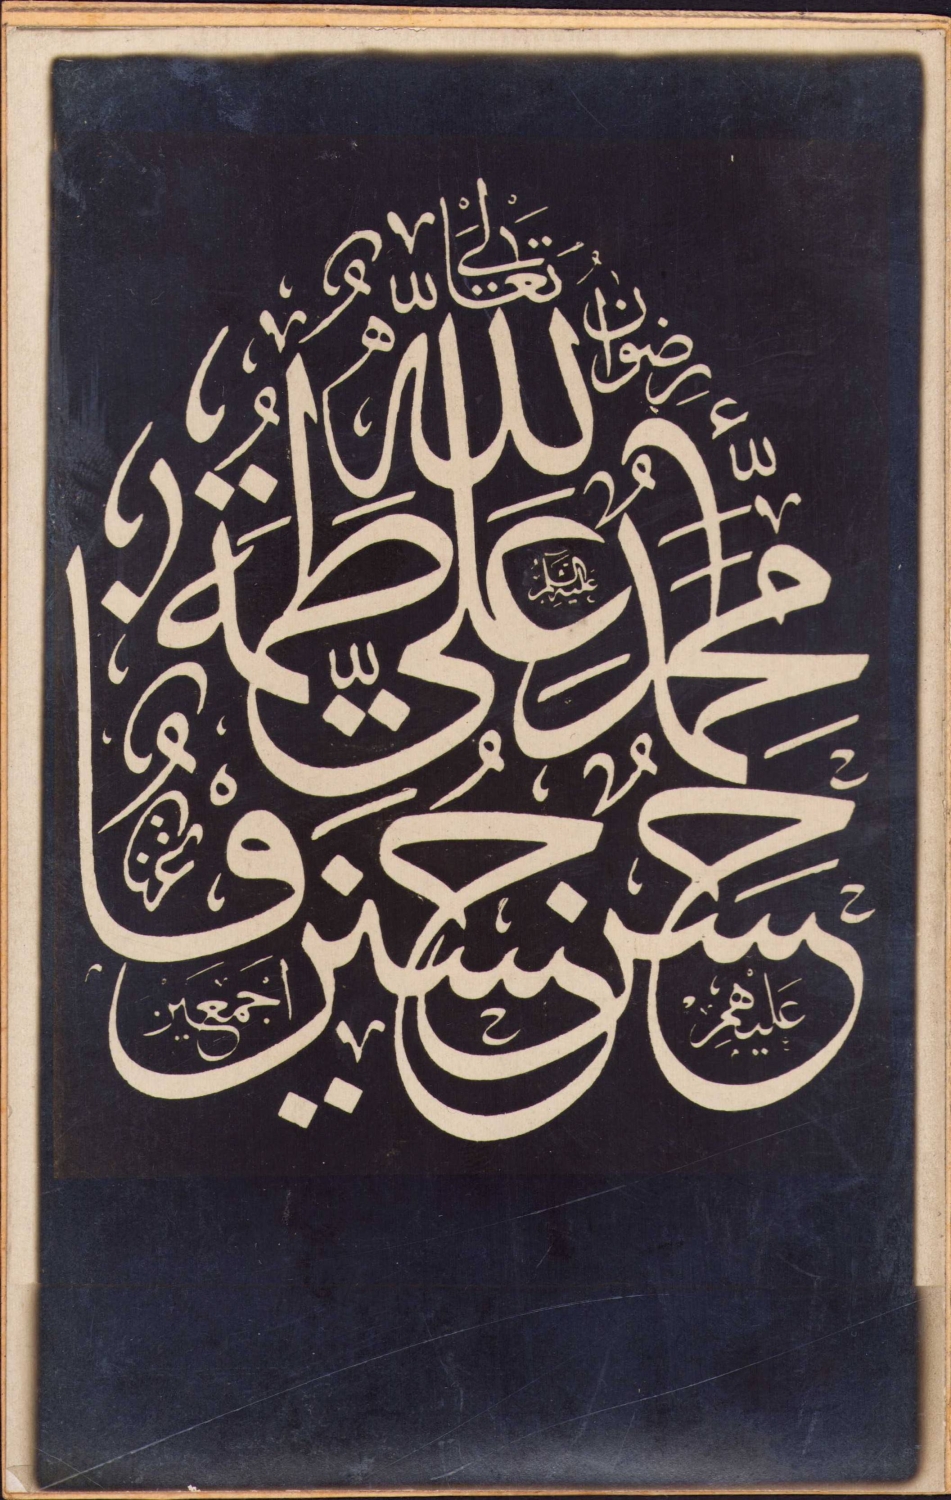 الله
محمد علي فاطمة
حسن حسين
عليه السلام
رضوان الله تعالى عليهم اجمعين